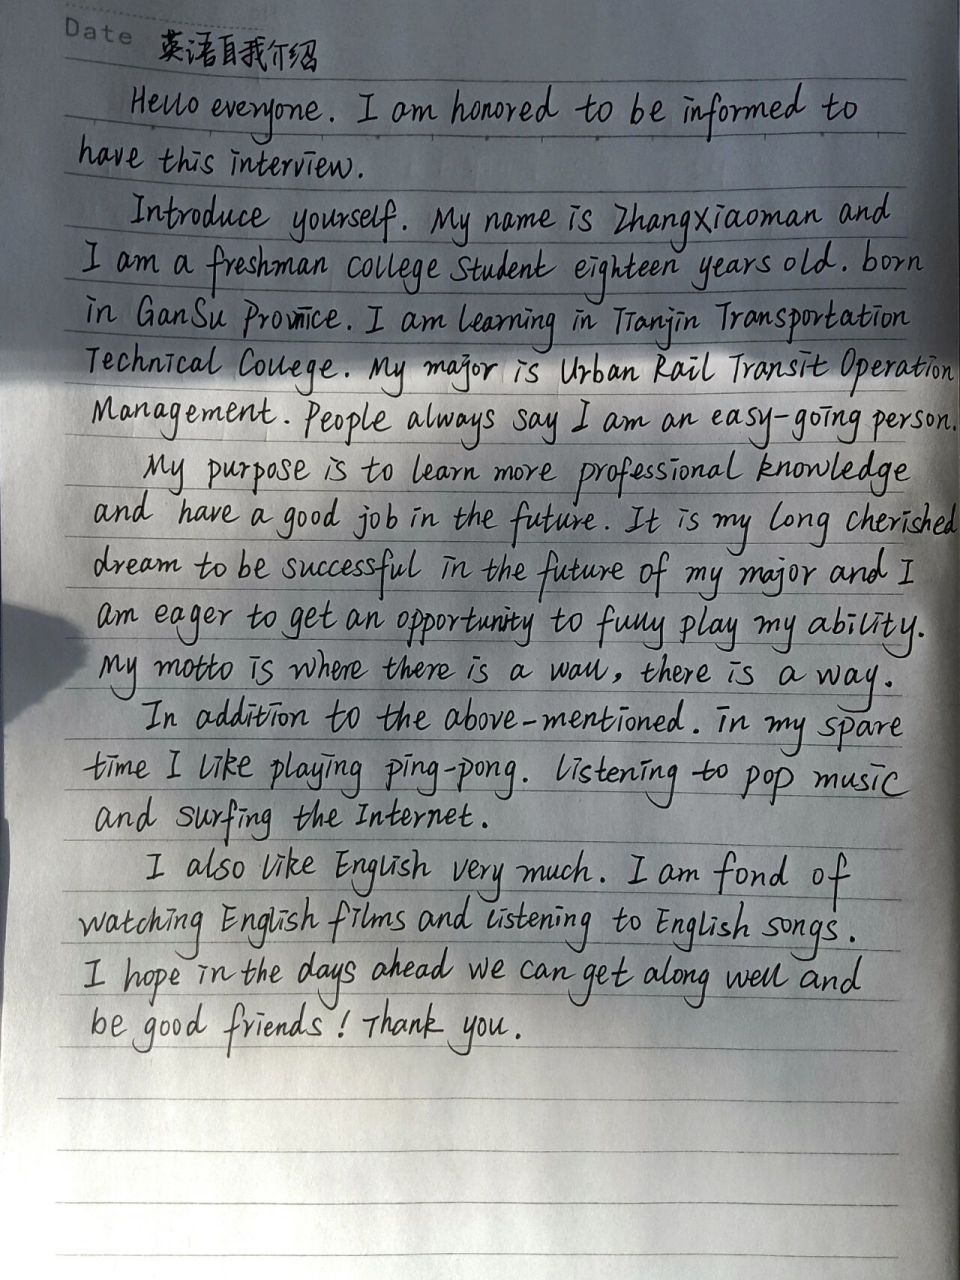 Date 英语自我介绍
Hello everyone. I am honored to be informed to
have this interview.
Introduce yourself. My name is ZhangXiaoman and
I am a freshman college Student eighteen years old. born
in GanSu Provnice. I am learning in Tianjin Transportation
Technical College. My major is Urban Rail Transit Operation
Management. People always say I am an easy-going person.
My purpose is to learn more professional knowledge
and have a good job in the future. It is my long cherished
dream to be successful in the future of my major and I
am eager to get an opportunity to fully play my ability.
My motto is where there is a wall, there is a way.
In addition to the above-mentioned. in my spare
time I like playing ping-pong. listening to pop music
and surfing the Internet.
I also like English very much. I am fond of
watching English films and listening to English songs.
I hope in the days ahead we can get along well and
be good friends! Thank you.